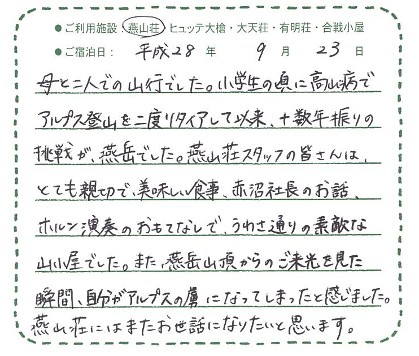 ●ご利用施設：燕山荘・ヒュッテ大槍・大天荘・有明荘・合戦小屋
●ご宿泊日： 平成28 年 9 月 23 日
母と二人での山行でした。小学生の頃に高山病で
アルプス登山を二度リタイアして以来、十数年振りの
挑戦が、燕岳でした。燕山荘スタッフの皆さんは、
とても親切で、美味しい食事、赤沼社長のお話、
ホルン演奏のおもてなしで、うわさ通りの素敵な
山小屋でした。また、燕岳山頂からのご来光を見た
瞬間、自分がアルプスの虜になってしまったと感じました。
燕山荘にはまたお世話になりたいと思います。